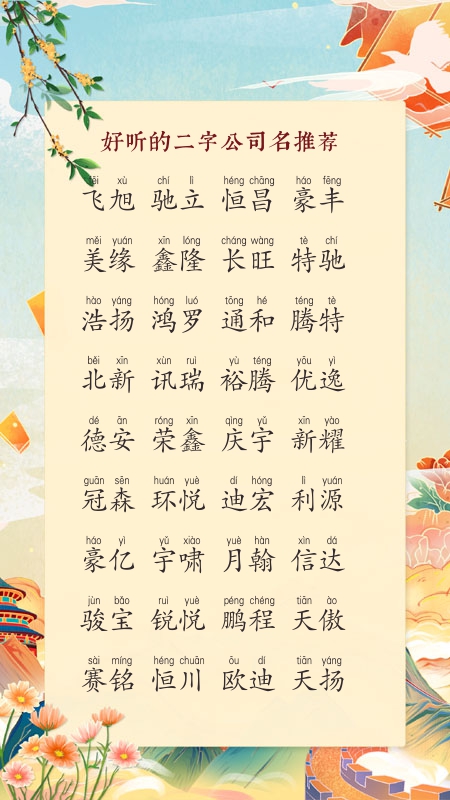 好听的二字公司名推荐
fēi xù chí lì héng chāng háo fēng
飞旭 驰立 恒昌 豪丰
měi yuán xīn lóng cháng wàng tè chí
美缘 鑫隆 长旺 特驰
hào yáng hóng luó tōng hé téng tè
浩扬 鸿罗 通和 腾特
běi xīn xùn ruì yù téng yōu yì
北新 讯瑞 裕腾 优逸
dé ān róng xīn qìng yǔ xīn yào
德安 荣鑫 庆宇 新耀
guān sēn huán yuè dí hóng lì yuán
冠森 环悦 迪宏 利源
háo yì yǔ xiào yuè hàn xìn dá
豪亿 宇啸 月翰 信达
jùn bǎo ruì yuè péng chéng tiān ào
骏宝 锐悦 鹏程 天傲
sài míng héng chuān ōu dí tiān yáng
赛铭 恒川 欧迪 天扬